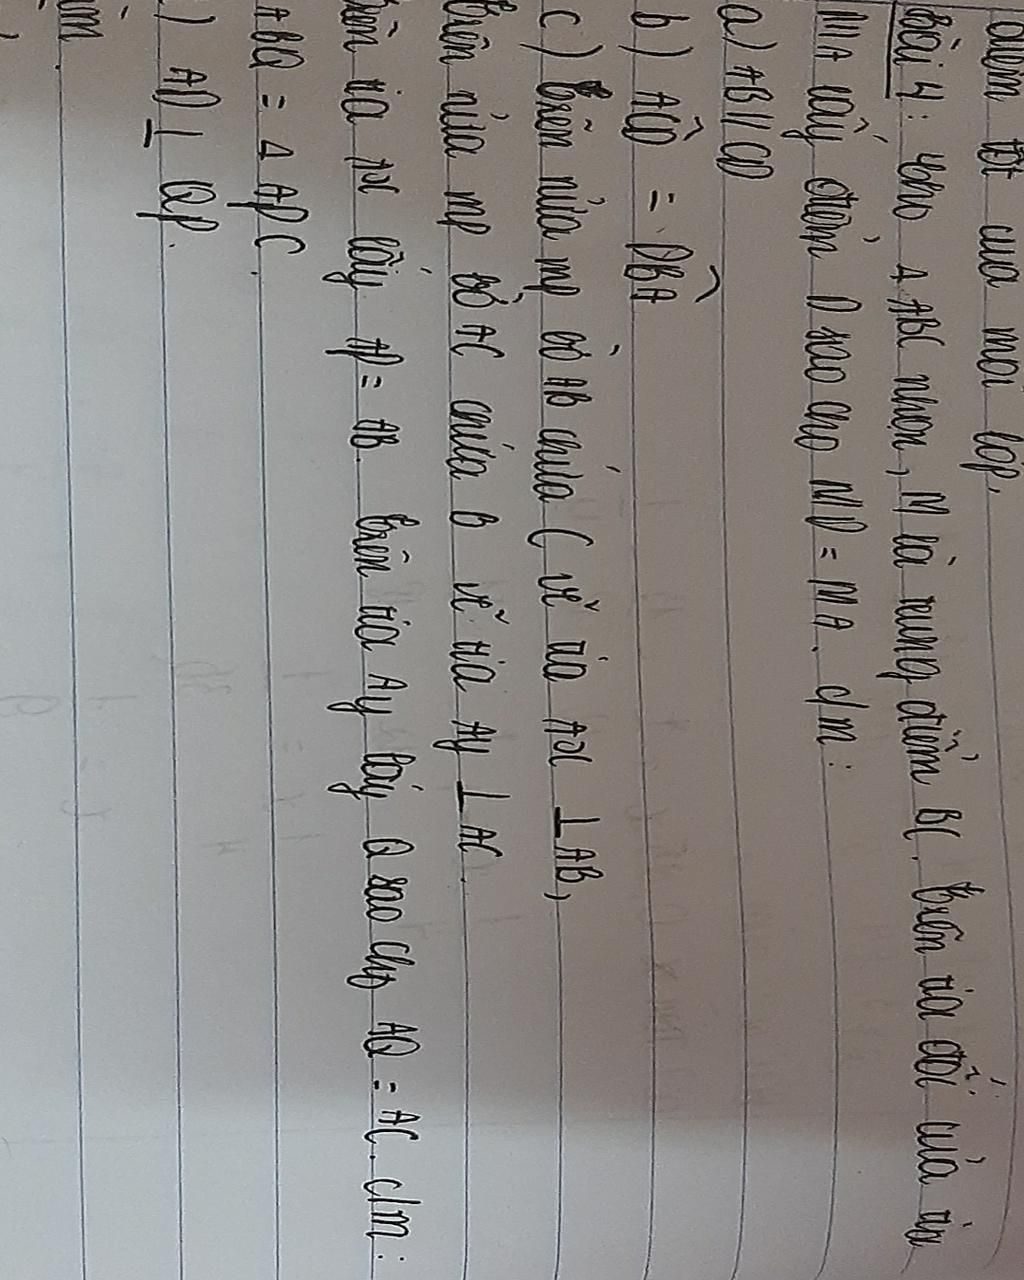 điểm tốt của mỗi lớp.
Bài 4: Cho Δ ABC nhọn, M là trung điểm BC. Trên tia đối của tia
MA lấy điểm D sao cho MD = MA. c/m:
a) AB // CD
b) ACD = DBA
c) Trên nửa mp bờ AB chứa C vẽ tia Ax ⊥ AB,
trên nửa mp bờ AC chứa B vẽ tia Ay ⊥ AC.
trên tia Ax lấy AP = AB. Trên tia Ay lấy Q sao cho AQ = AC. c/m:
ABQ = Δ APC.
) AD ⊥ QP.